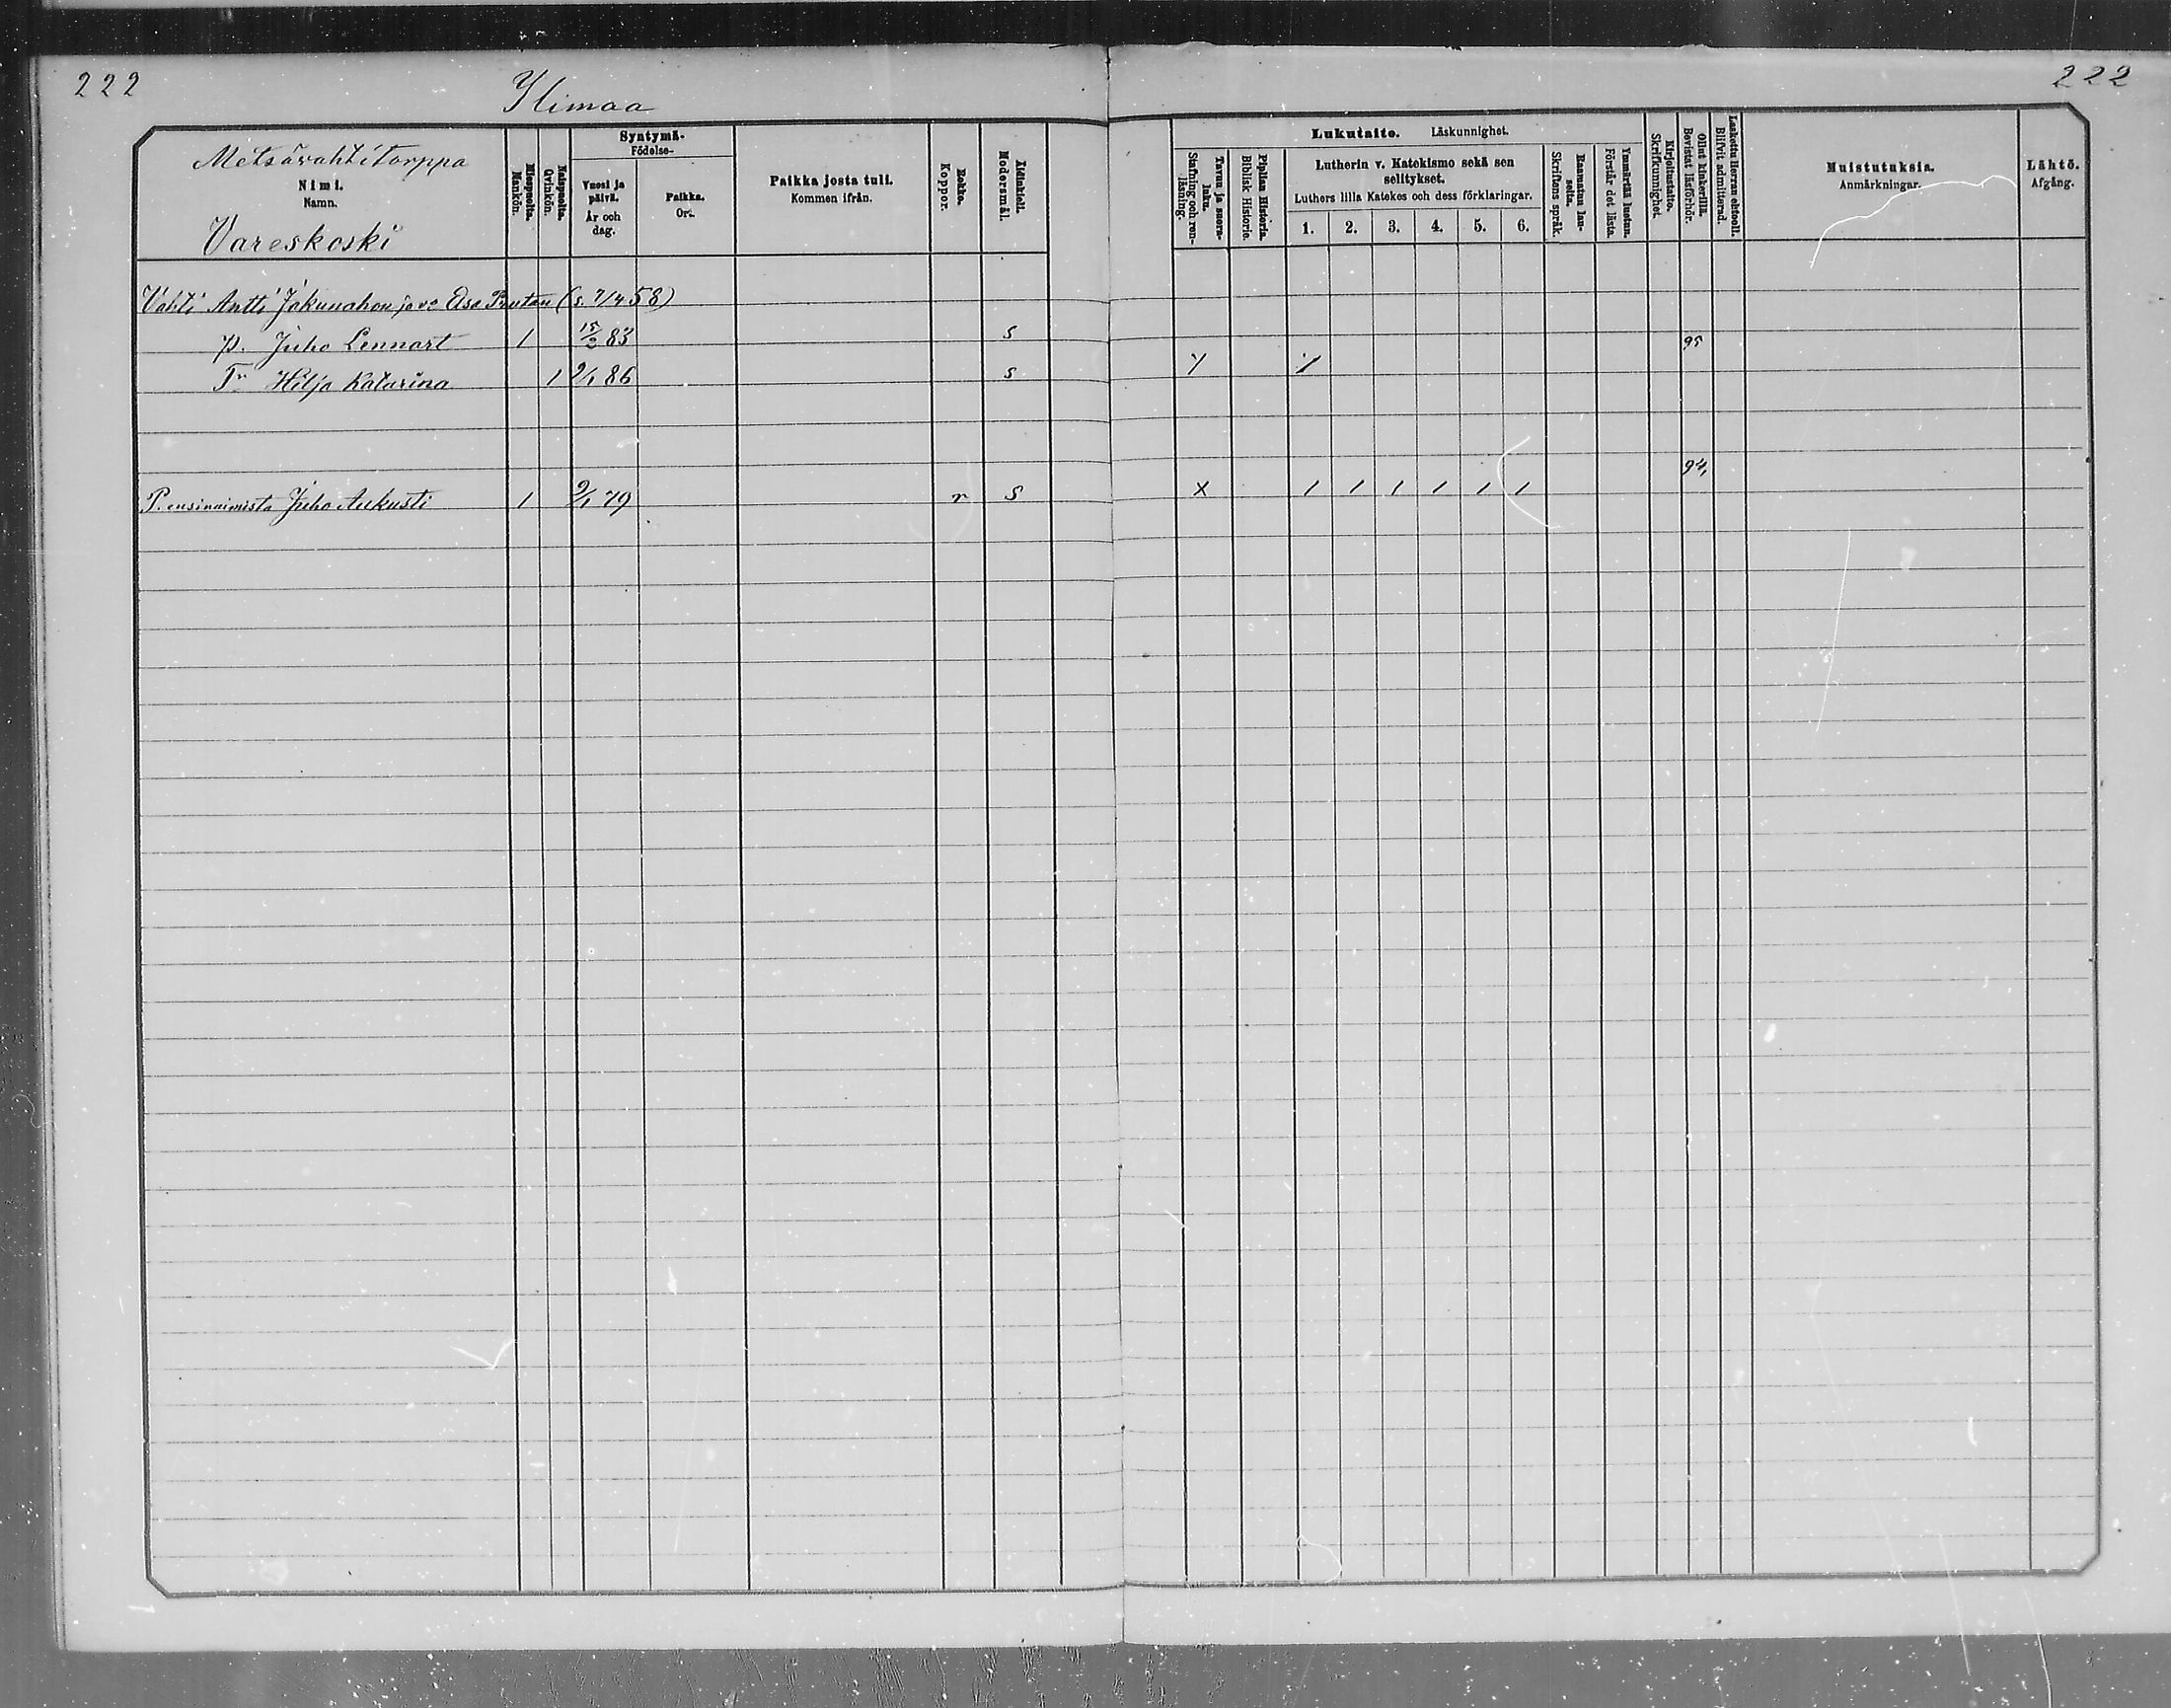 222
Ylimaa
222
Metsävahtitorppa
Nimi.
Namn.
Vareskoski
Miespuolia.
Mankön.
Naispuolia.
Qvinkön.
Syntymä-
Födelse-
Vuosi ja
päivä.
År och
dag.
Paikka.
Ort.
Paikka josta tuli.
Kommen ifrån.
Rokko.
Koppor.
Äidinkieli.
Modersmål.
Lukutaito. Läskunnighet.
Tavuu ja suora-
luku.
Stafning och ren-
läsning.
Piplian Historia.
Biblisk Historie.
Lutherin v. Katekismo sekä sen
selitykset.
Luthers lilla Katekes och dess förklaringar.
1. 2. 3. 4. 5. 6.
Raamatun lau-
seita.
Skriftens språk.
Ymmärtää luetun.
Förstår det lästa.
Kirjoitustaito.
Skrifkunnighet.
Ollut kinkerillä.
Bevistat läsförhör.
Laskettu Herran ehtool.
Blifvit admitterad.
Muistutuksia.
Anmärkningar.
Lähtö.
Afgång.
Vahti Antti Jakunahon ja vo (s. 7/4 58)
p. Juho Lennart 1 15/2 83 s 95
Tr Hilja Katarina 1 2/1 86 s
94
P. ensinaimista Juho Aukusti 1 9/1 79 r s x / / / / / /